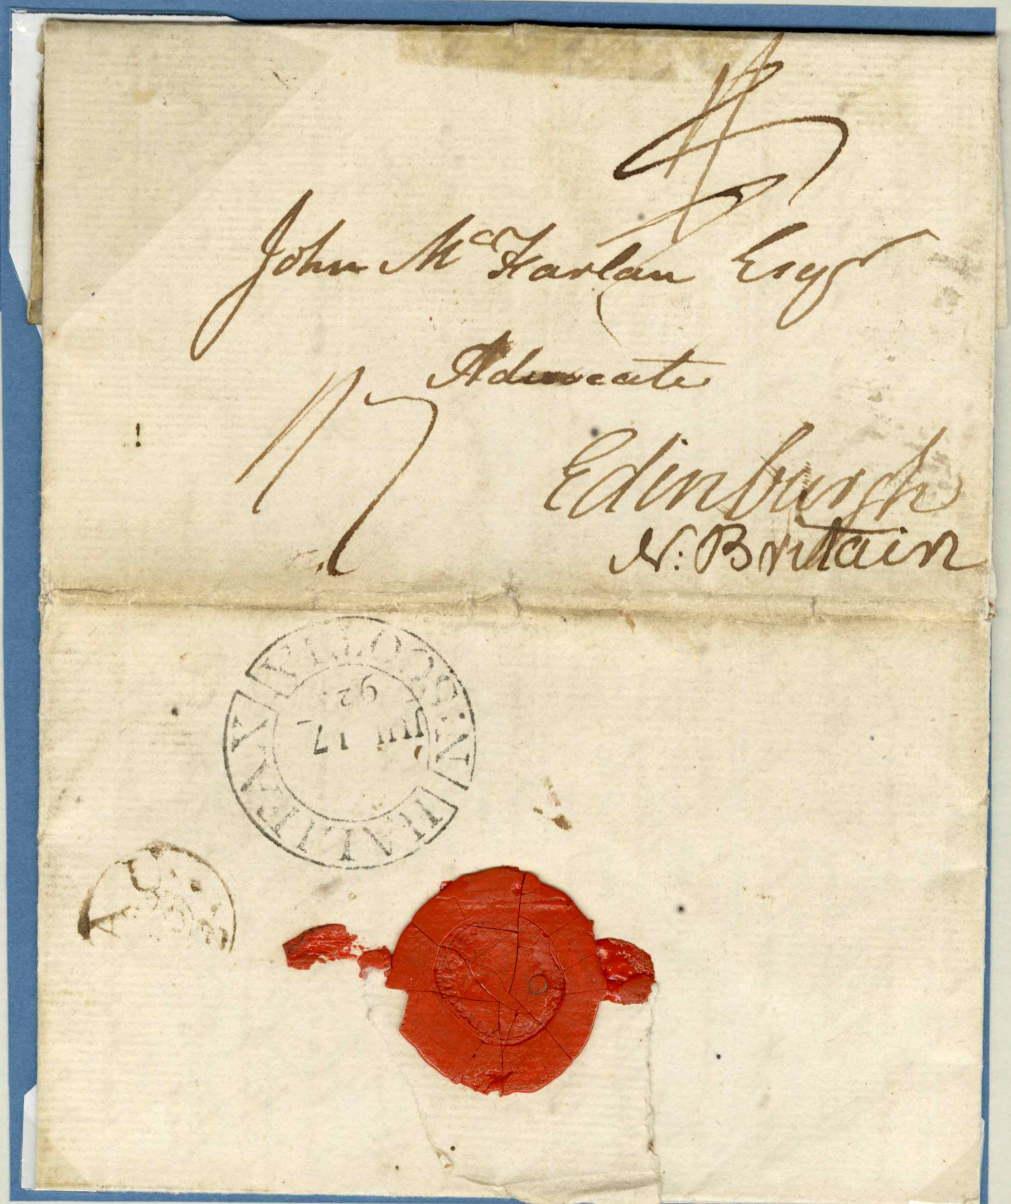 John McFarlan Esqr
Advocate
Edinburgh
N: Britain
HALIFAX
N: SCOTIA
JUL 17
92
AU